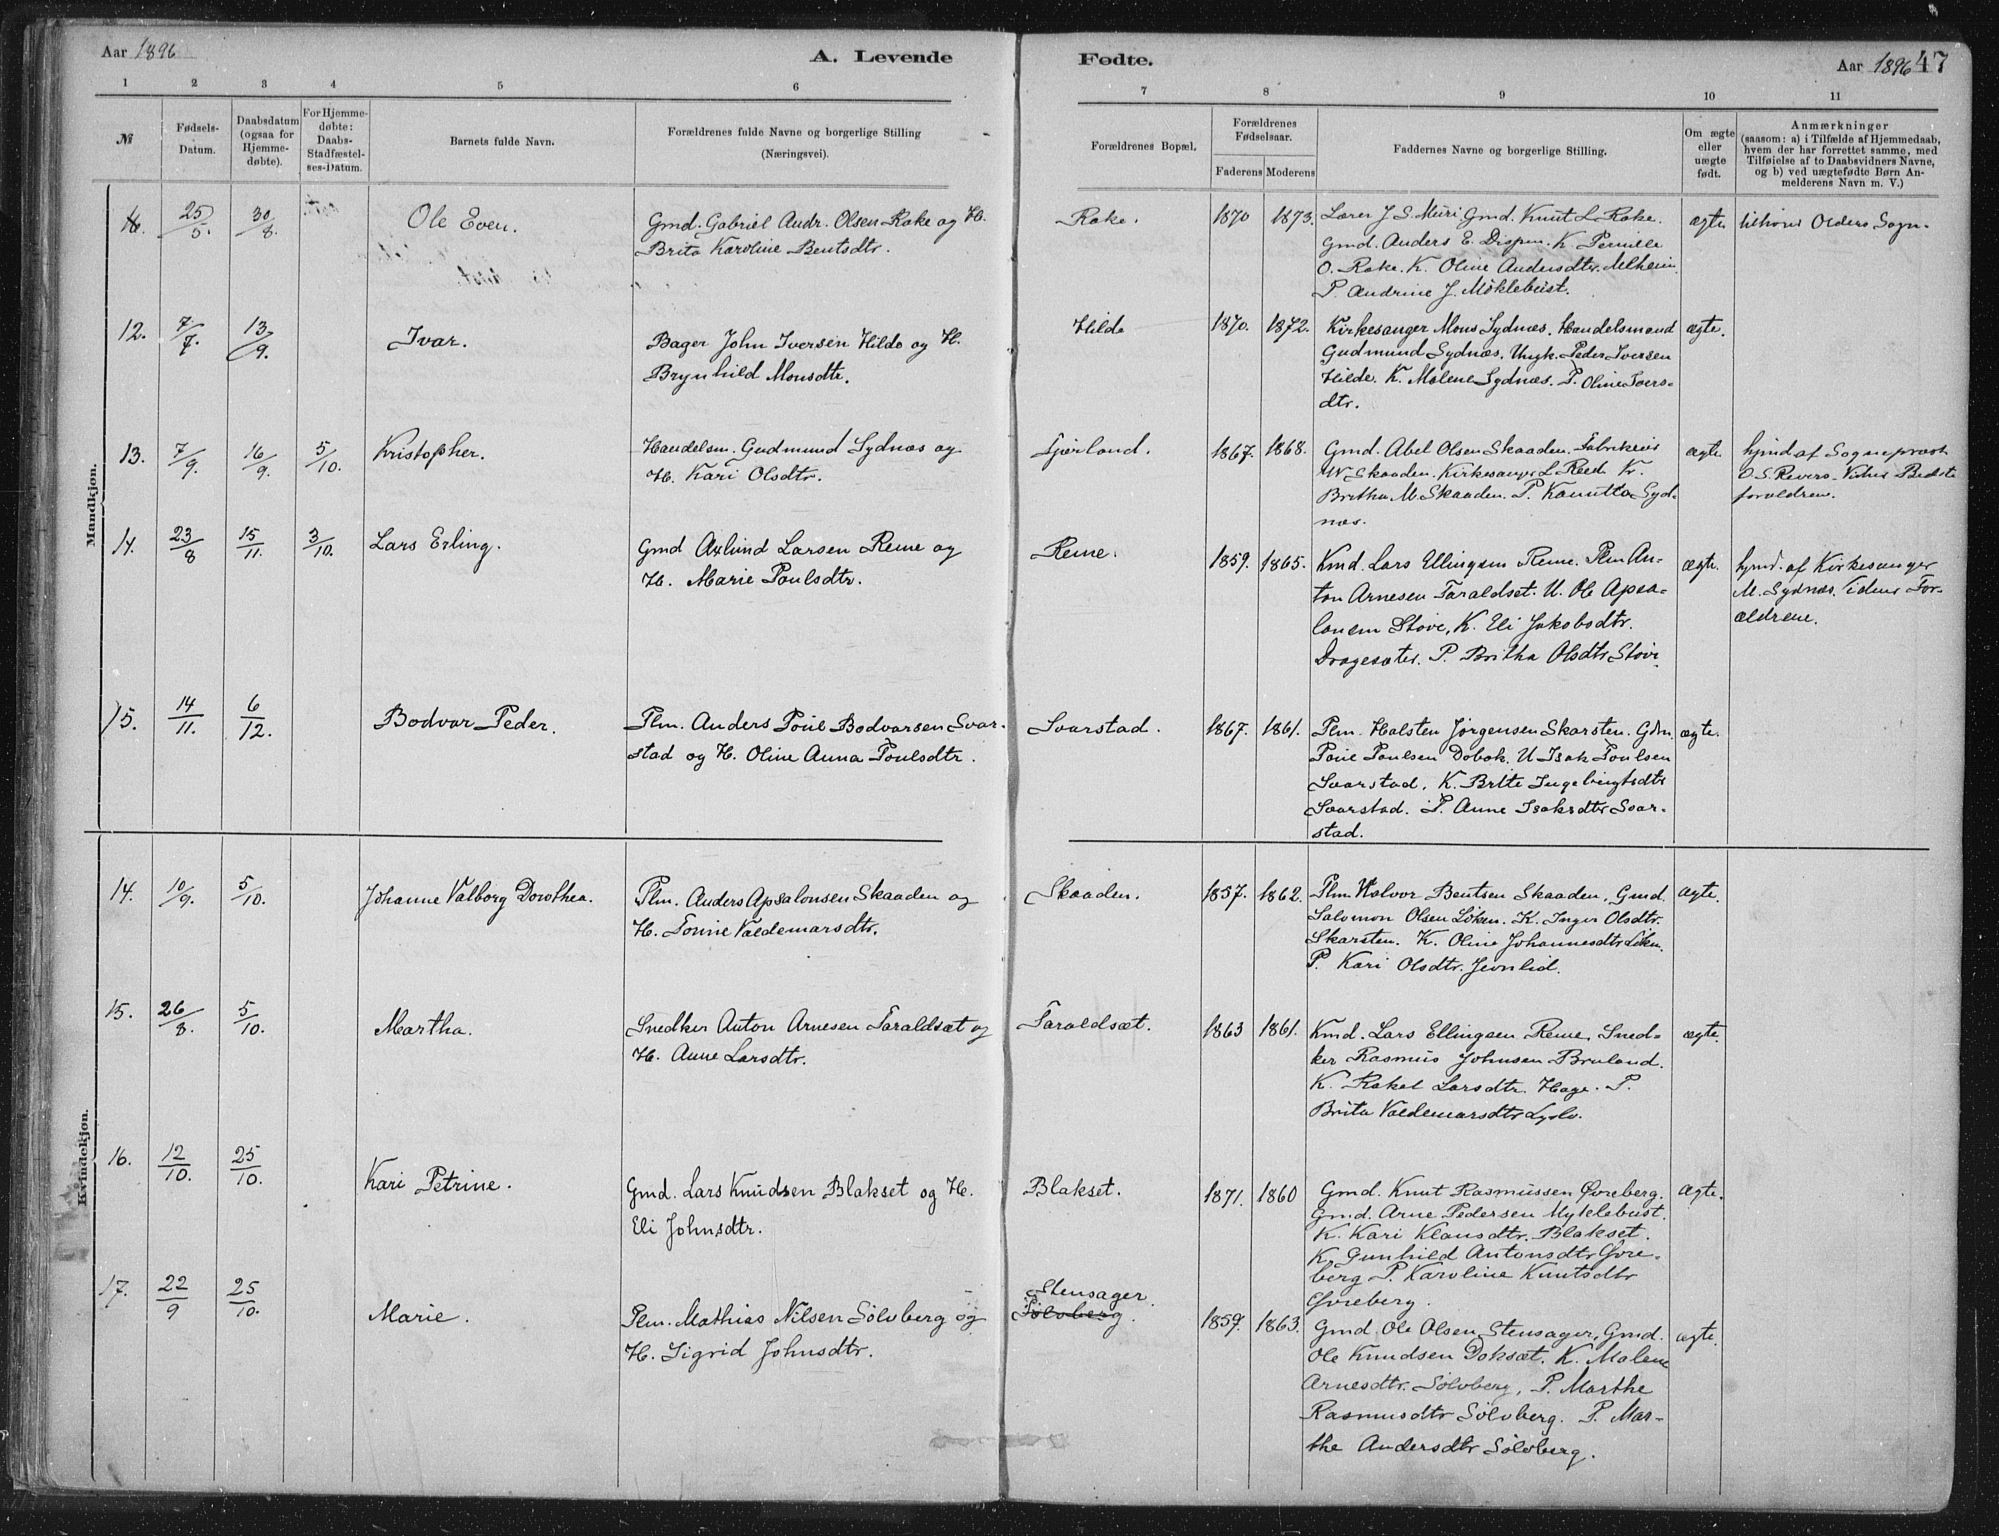 Aar 1896
A. Levende
Fødte.
Aar 1896
47
1 2 3 4 5 6 7 8 9 10 11
№
Fødsels-
Datum.
Daabsdatum
(ogsaa for
Hjemme-
døbte).
For Hjemme-
døbte:
Daabs-
Stadfæstel-
ses-Datum.
Barnets fulde Navn.
Forældrenes fulde Navne og borgerlige Stilling
(Næringsvei).
Forældrenes Bopæl.
Forældrenes
Fødselsaar.
Faderens Moderens
Faddernes Navne og borgerlige Stilling.
Om ægte
eller
uægte
født.
Anmærkninger
(saasom: a) i Tilfælde af Hjemmedaab,
hvem der har forrettet samme, med
Tilføielse af to Daabsvidners Navne,
og b) ved uægtefødte Børn An-
melderens Navn m. V.)
Mandkjøn.
25/5 30/8
Ole Even.
Gmd. Gabriel Andr. Olsen Rake og H.
Brita Karoline Bentsdtr.
Rake.
1870 1873.
Lærer J. S. Muri Gmd. Knut L. Rake.
Gmd. Anders E. Dispen. K. Pernille
O. Rake. K. Oline Andersdtr. Melheim
P. Andrine J. Möklebust.
ægte
tilhører Oldens Sogn.
12. 7/7 13/9
Ivar.
Bager John Iversen Hilde og H.
Brynhild Monsdtr.
Hilde
1870. 1872.
Kirkesanger Mons Sydnæs. Handelsmand
Gudmund Sydnæs. Ungk. Peder Iversen
Hilde. K. Malene Sydnæs. P. Oline Ivers-
dtr.
ægte.
13. 7/9 16/9 5/10.
Kristopher.
Handelsm. Gudmund Sydnæs og
H. Kari Olsdtr.
1867. 1868.
Gmd. Abel Olsen Skaaden. Fabrikeier
W Skaaden. Kirkesanger L. Reed K.
Britha M. Skaaden. P. Kanutta Syd-
næs.
ægte
hjmd af Sogneprest
O. S. Vidner Bedste
forældrene.
14. 23/8 15/11. 3/10.
Lars Erling.
Gmd Axlund Larsen Reme og
H. Marie Poulsdtr.
Reme.
1859. 1865.
Kmd. Lars Ellingsen Reme. Plm An-
ton Arnesen Taraldset. U. Ole Apsa-
lonsen Stove, K. Eli Jakobsdtr.
Dragesæter. P. Britha Olsdtr Stove
ægte.
hjmd. af Kirkesanger
M. Sydnæs. Vidner For-
ældrene.
15. 14/11. 6/12.
Bodvar Peder.
Plm. Anders Poul Bodvarsen Svar-
stad og H. Oline Anna Poulsdtr.
Svarstad.
1867. 1861.
Plm. Halsten Jørgensen Skarsten. Gdm
Poul Poulsen Dobok. U Isak Poulsen
Svarstad. K. Brite Ingebrigtsdtr
Svarstad. P. Anne Isaksdtr Svar-
stad.
ægte.
Kvindekjøn.
14. 10/9. 5/10.
Johanne Valborg Dorothea.
Plm. Anders Apsalonsen Skaaden og
H. Tomine Valdemarsdtr.
Skaaden.
1857. 1862.
Plm. Halvor Bentsen Skaaden, Gmd.
Salomon Olsen Løken. K. Inger Olsdtr.
Skarsten. K. Oline Johannesdtr Løken.
P. Kari Olsdtr.
ægte.
15. 26/8. 5/10.
Martha.
Snedker Anton Arnesen Taraldsæt og
H. Anne Larsdtr.
Taraldsæt.
1863 1861.
Kmd. Lars Ellingsen Reme. Sned-
ker Rasmus Johnsen Bruland.
K. Rakel Larsdtr. Hage. P.
Brita Valdemarsdtr
ægte.
16. 12/10. 25/10.
Kari Petrine.
Gmd. Lars Knudsen Blakset og H.
Eli Johnsdtr.
Blakset.
1871. 1860
Gmd. Knut Rasmussen Øvreberg.
Gmd. Arne Pedersen Myklebust.
K. Kari Klausdtr. Blakset.
K. Gunhild Antonsdtr Øvre-
berg P. Karoline Knutsdtr
Øvreberg.
Ægte.
17. 22/9 25/10.
Marie.
Plm. Mathias Nilsen Sölvberg og
H. Sigrid Johnsdtr.
Stensager.
Sölvberg.
1859. 1863.
Gmd. Ole Olsen Stensager, Gmd.
Ole Knudsen Doksæt. K. Malene
Arnesdtr. Sölvberg, P. Marthe
Rasmusdtr Sölvberg. P. Mar-
the Andersdtr Sölvberg.
ægte.